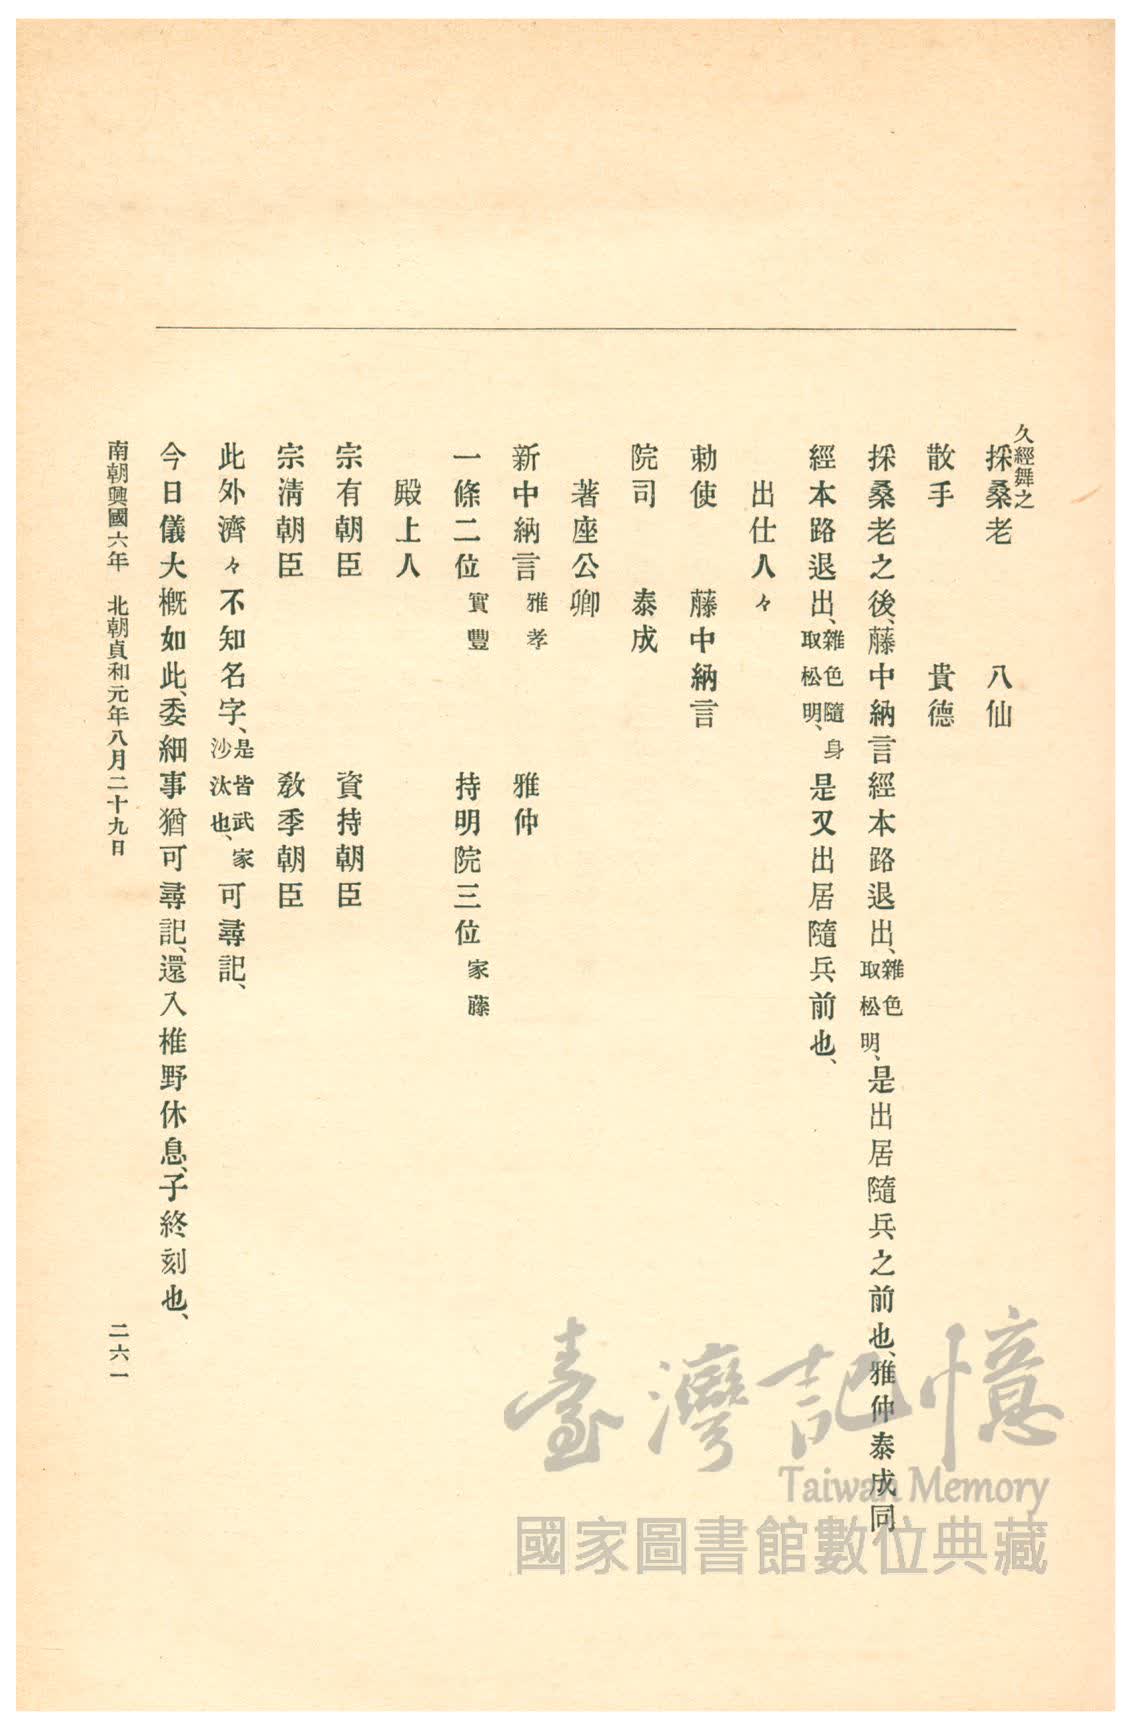 久經舞之
採桑老　　　八仙
散手　　　　貴德
採桑老之後、藤中納言經本路退出、雜色取松明、是出居隨兵之前也、雅仲泰成同
經本路退出、雜色隨身取松明、是又出居隨兵前也、
出仕人々
勅使　　藤中納言
院司　　泰成
著座公卿
新中納言雅孝　　　雅仲
一條二位實豐　　　持明院三位家藤
殿上人
宗有朝臣　　　　　資持朝臣
宗淸朝臣　　　　　敎季朝臣
此外濟々不知名字、是皆武家沙汰也、可尋記、
今日儀大槪如此、委細事猶可尋記、還入椎野休息、子終刻也、
南朝興國六年　北朝貞和元年八月二十九日　　二六一
臺灣記憶
Taiwan Memory
國家圖書館數位典藏